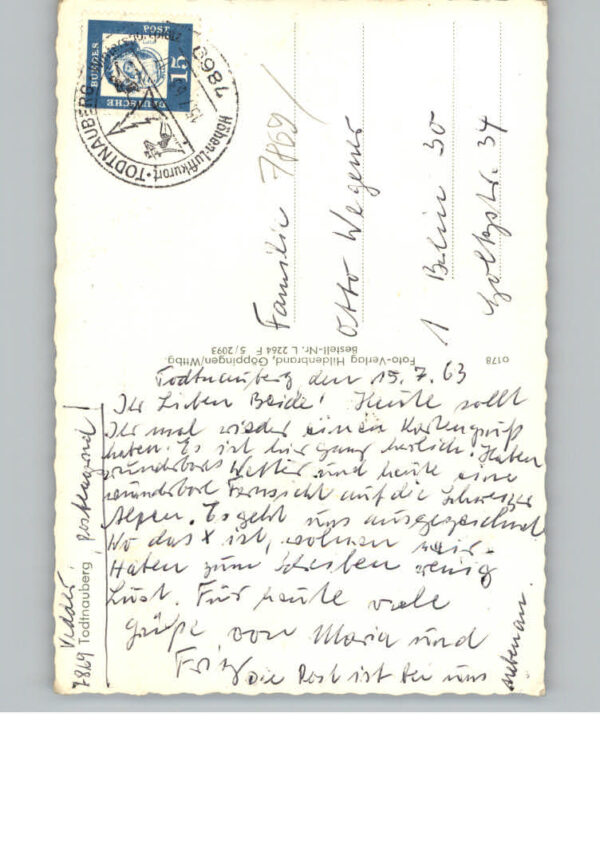 DEUTSCHE
BUNDES
POST
15
7869 TODTNAUBERG
Höhen-Luftkurort
7869
Familie
Otto Wegener
1 Berlin 30
Goltzstr. 34
Foto-Verlag Hildenbrand, Göppingen/Wttbg.
Bestell-Nr. L 2264 F 5/2093
0178
Todtnauberg, den 15.7.63
Ihr Lieben Beide! Heute sollt
Ihr mal wieder einen Kartengruß
haben. Es ist hier ganz herlich. Haben
wunderbares Wetter und heute eine
wunderbare Fernsicht auf die Schweizer
Alpen. Es geht uns ausgezeichnet
Wo das X ist, wohnen wir.
Haben zum Schreiben wenig
Lust. Für heute viele
Grüße von Maria und
Fritz
Die Post ist bei uns
nebenan.
postlagernd!
7869 Todtnauberg